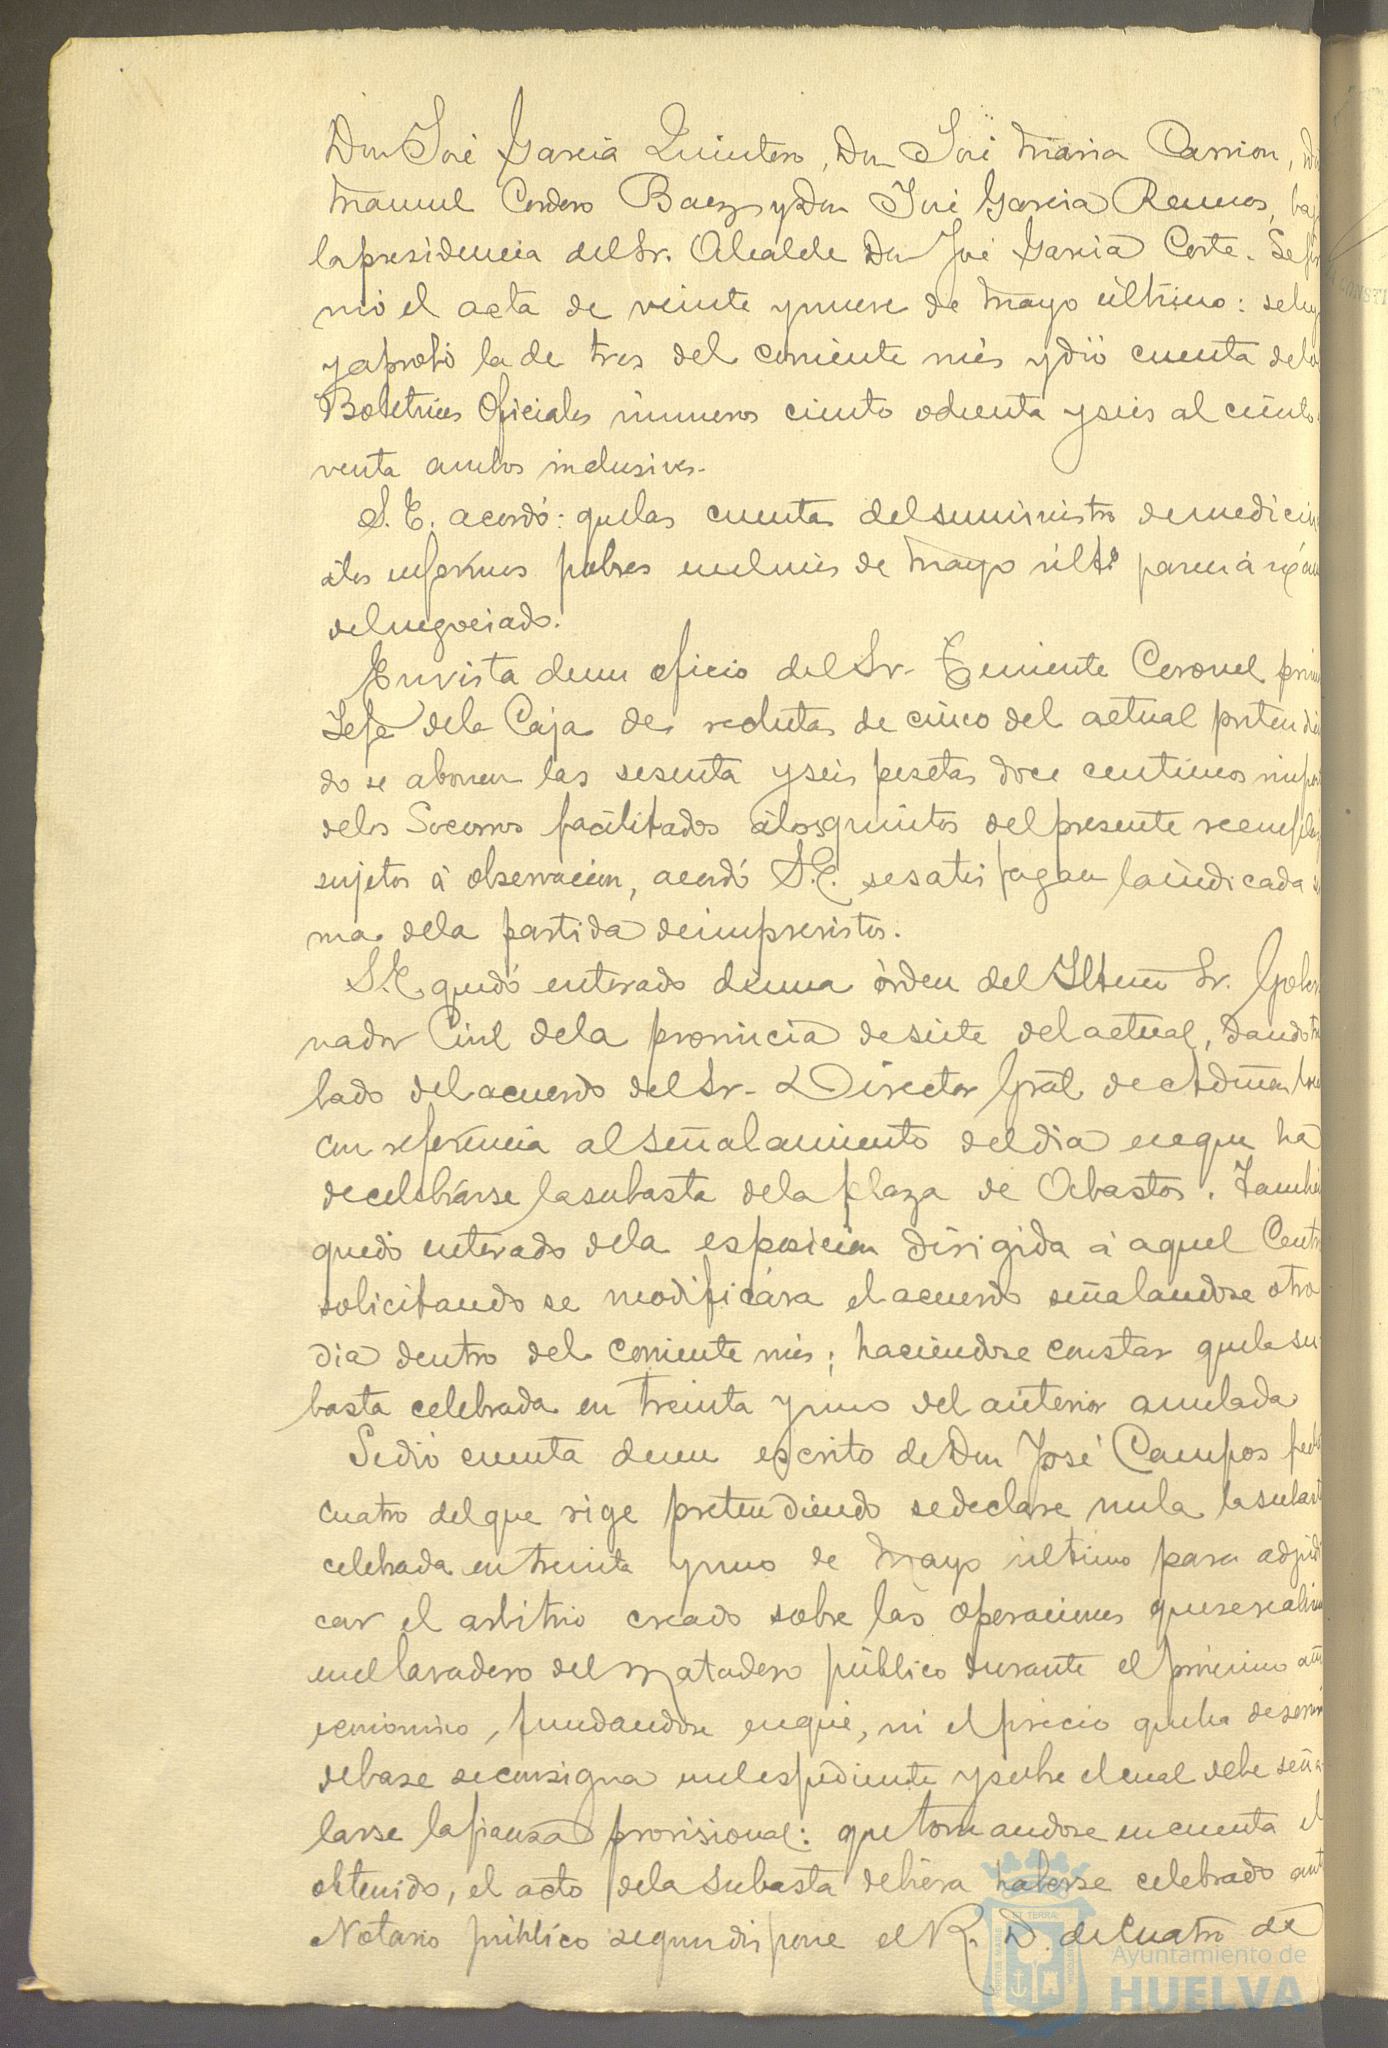 Don José Garcia Quintero, Don José Maria Carrion, Don
Manuel Cordero Baez y Don José Garcia Ramos, bajo
la presidencia del Sr. Alcalde Don José Garcia Corte. Se fir
mó el acta de veinte y nueve de Mayo último: se leyó
y aprobó la de tres del corriente mes y dió cuenta de los
Boletines Oficiales números ciento ochenta y seis al ciento
venta ambos inclusives.
S. E. acordó: que las cuentas del suministro de medicin
á los enfermos pobres en el mes de Mayo últº pasen á exámen
del negociado.
En vista de un oficio del Sr. Teniente Coronel primer
Jefe de la Caja de reclutas de cinco del actual pretendien
do se abonen las sesenta y seis pesetas doce centimos import
de los Socorros facilitados á los quintos del presente reemplazo
sujetos á observacion, acordó S. E. se satisfagan la indicada su
ma de la partida de imprevistos.
S. E. quedó enterado de una órden del Iltmo Sr. Gober
nador Civil de la provincia de siete del actual, dando tras
lado del acuerdo del Sr. Director Gral de Admon local
con referencia al señalamiento del dia en que ha
de celebrarse la subasta de la plaza de Abastos. Tambien
quedó enterado de la esposicion dirigida á aquel Centro
solicitando se modificára el acuerdo señalandose otro
dia dentro del corriente mes; haciendose constar que la su
basta celebrada en treinta y uno del anterior anulada
Se dió cuenta de un escrito de Don José Campos fecha
cuatro del que rige pretendiendo se declare nula la subasta
celebrada en treinta y uno de Mayo último para adjudi
car el arbitrio creado sobre las operaciones que se realicen
en el lavadero del Matadero público durante el próximo año
economico, fundandose en que, ni el precio que ha de servir
de base se consigna en el espediente y sobre el cual debe seña
larse la fianza provisional: que tomandose en cuenta el
obtenido, el acto de la subasta debiera haberse celebrado ante
Notario público segun dispone el R. D. de cuatro de
Ayuntamiento de
HUELVA